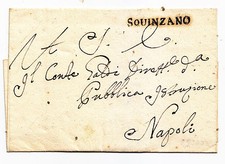 SQUINZANO
A S. E.
Il Conte Galdi Dirett.e da
Pubblica Istruzione
Napoli